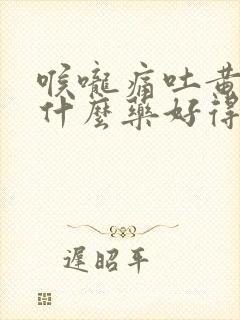 喉嚨痛吐黄
什麼藥好得
遲昭平